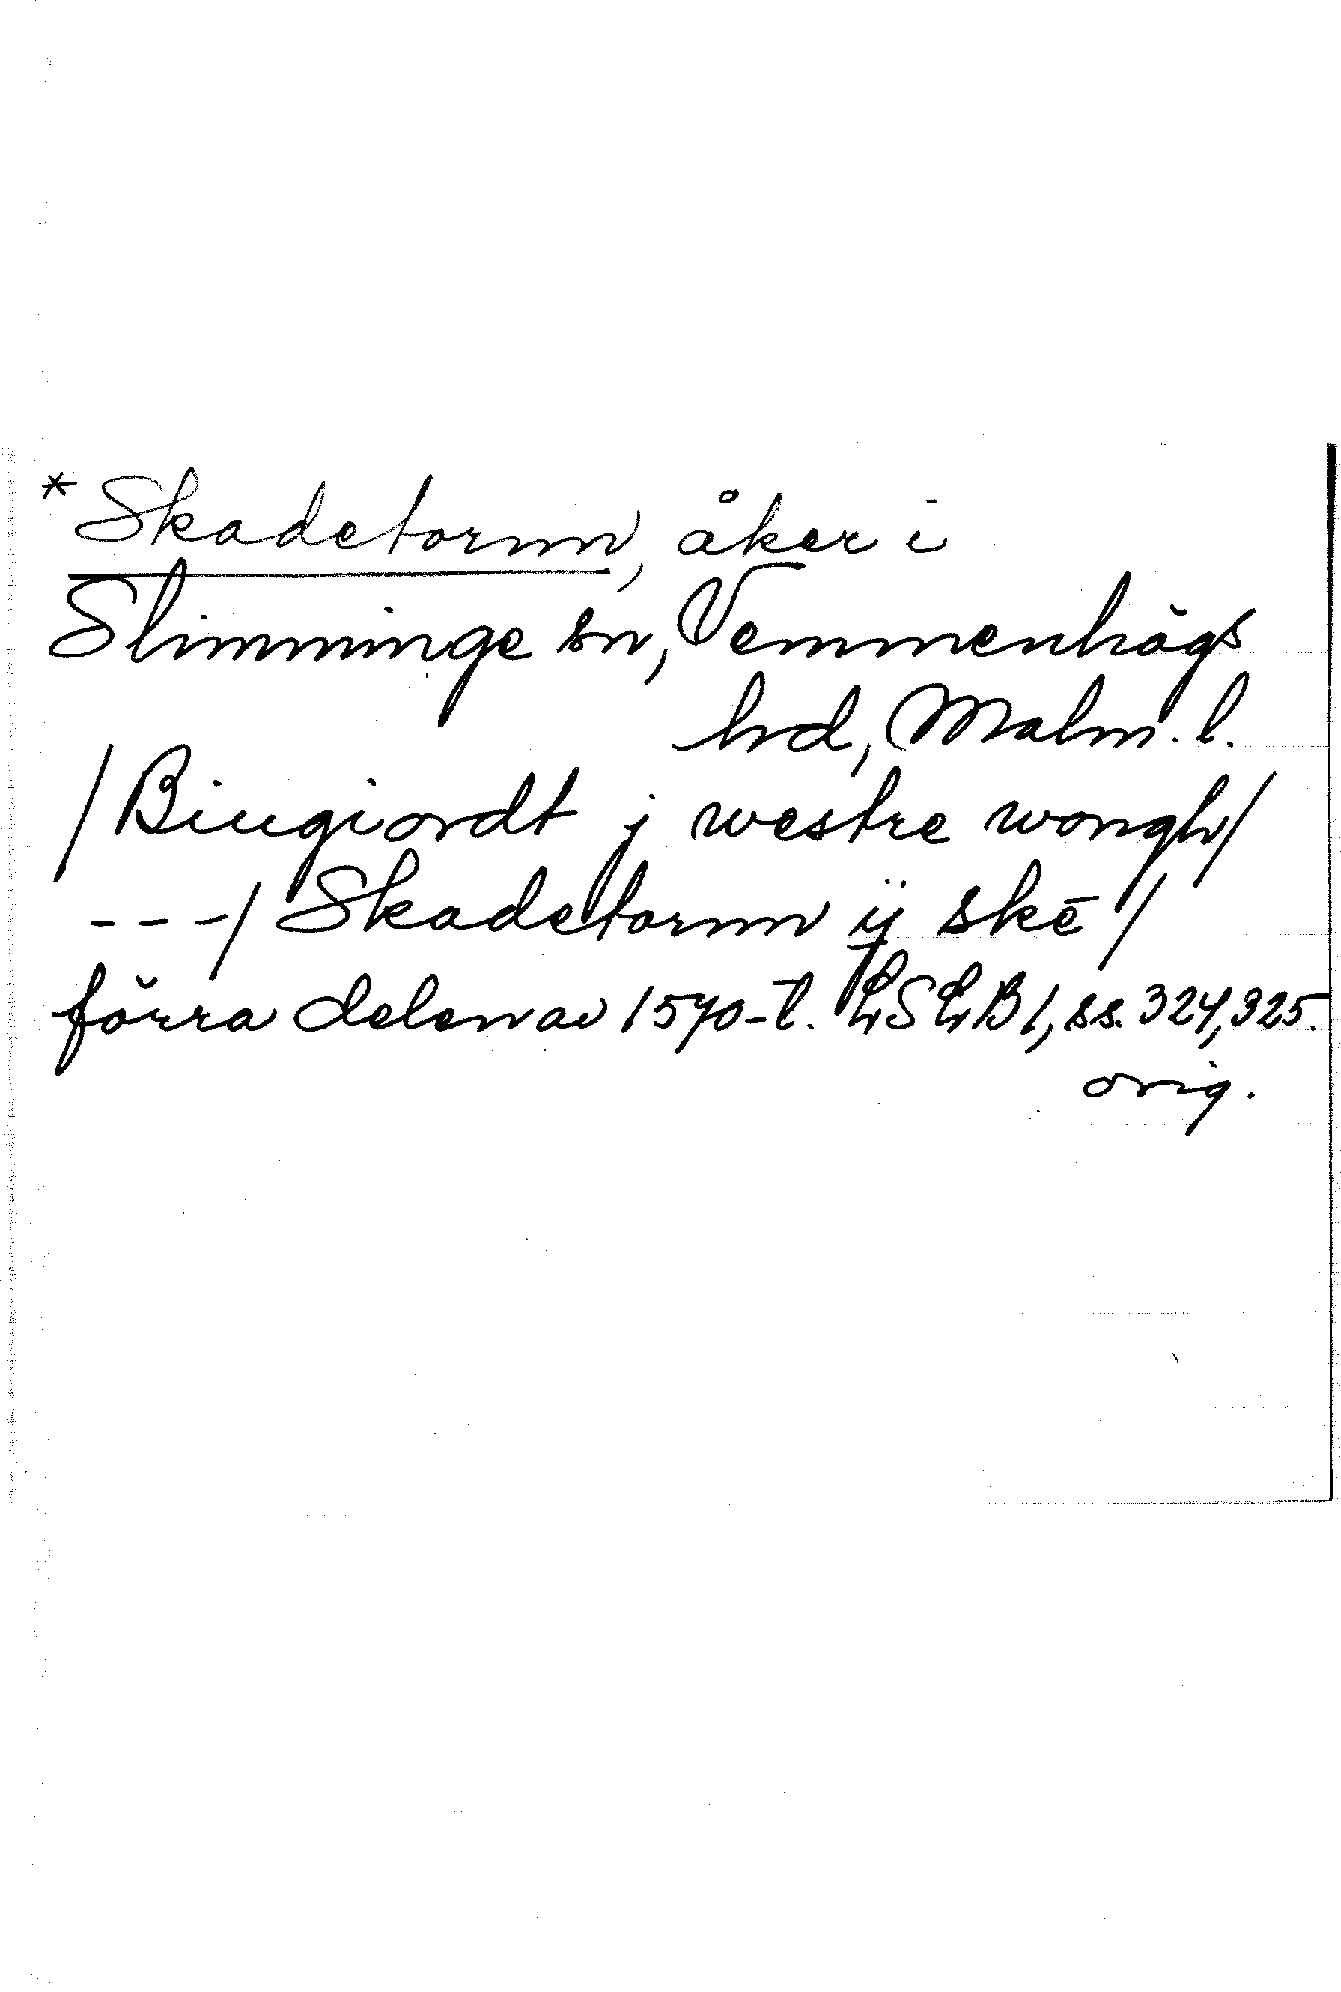 *Skadetornn, åker i
Slimminge sn, Vemmenhögs
hd, Malm. l.
/Biugiordt j westre wongh/
---/ Skadetornn ij skē/
förra delen av 1570-t. LSLB1, ss. 324, 325.
orig.